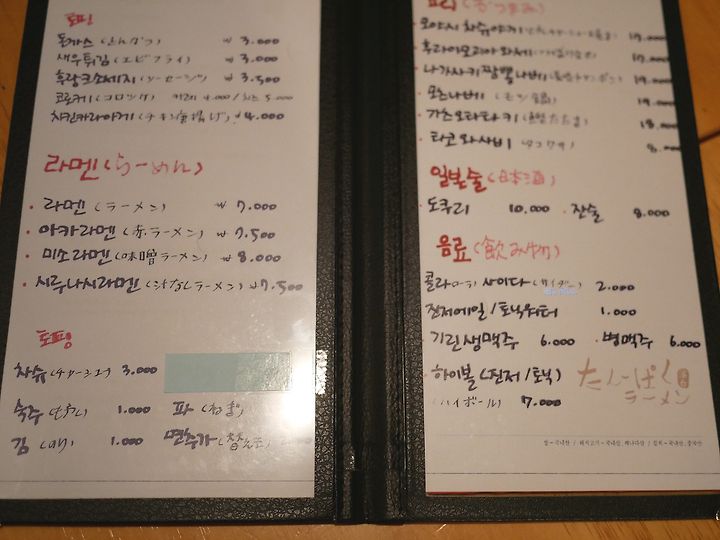 토핑
돈가스 (とんかつ) ₩ 3.000
새우튀김 (エビフライ) ₩ 3.000
후랑크소세지 (ソーセージ) ₩ 3.500
코로케 (コロッケ) 4.000 / 치즈 5.000
치킨카라아게 (チキン唐揚げ) ₩ 4.000
라멘 (らーめん)
· 라멘 (ラーメン) ₩ 7.000
· 아카라멘 (赤ラーメン) ₩ 7.500
· 미소라멘 (味噌ラーメン) ₩ 8.000
· 시루나시라멘 (汁なしラーメン) ₩ 7.500
토핑
차슈 (チャーシュー) 3.000
숙주 (もやし) 1.000 파 (ねぎ)
김 (のり) 1.000 면추가 (替え玉)
요리 (おつまみ)
모야시 차슈야키 19.000
후라이모리아와세 17.000
나가사키짬뽕나베 19.000
모츠나베 (モツ鍋) 19.000
가츠오타타키 18.000
타코와사비 (タコワサ) 8.000
일본술 (日本酒)
· 도쿠리 10.000 · 잔술 8.000
음료 (飲み物)
콜라 (コーラ) 사이다 (サイダー) 2.000
진저에일 / 토닉워터 1.000
기린생맥주 6.000 · 병맥주 6.000
· 하이볼 (진저 / 토닉)
(ハイボール) 7.000
たんーぱく
ラーメン
쌀-국내산 / 돼지고기-국내산, 캐나다산 / 김치-국내산, 중국산